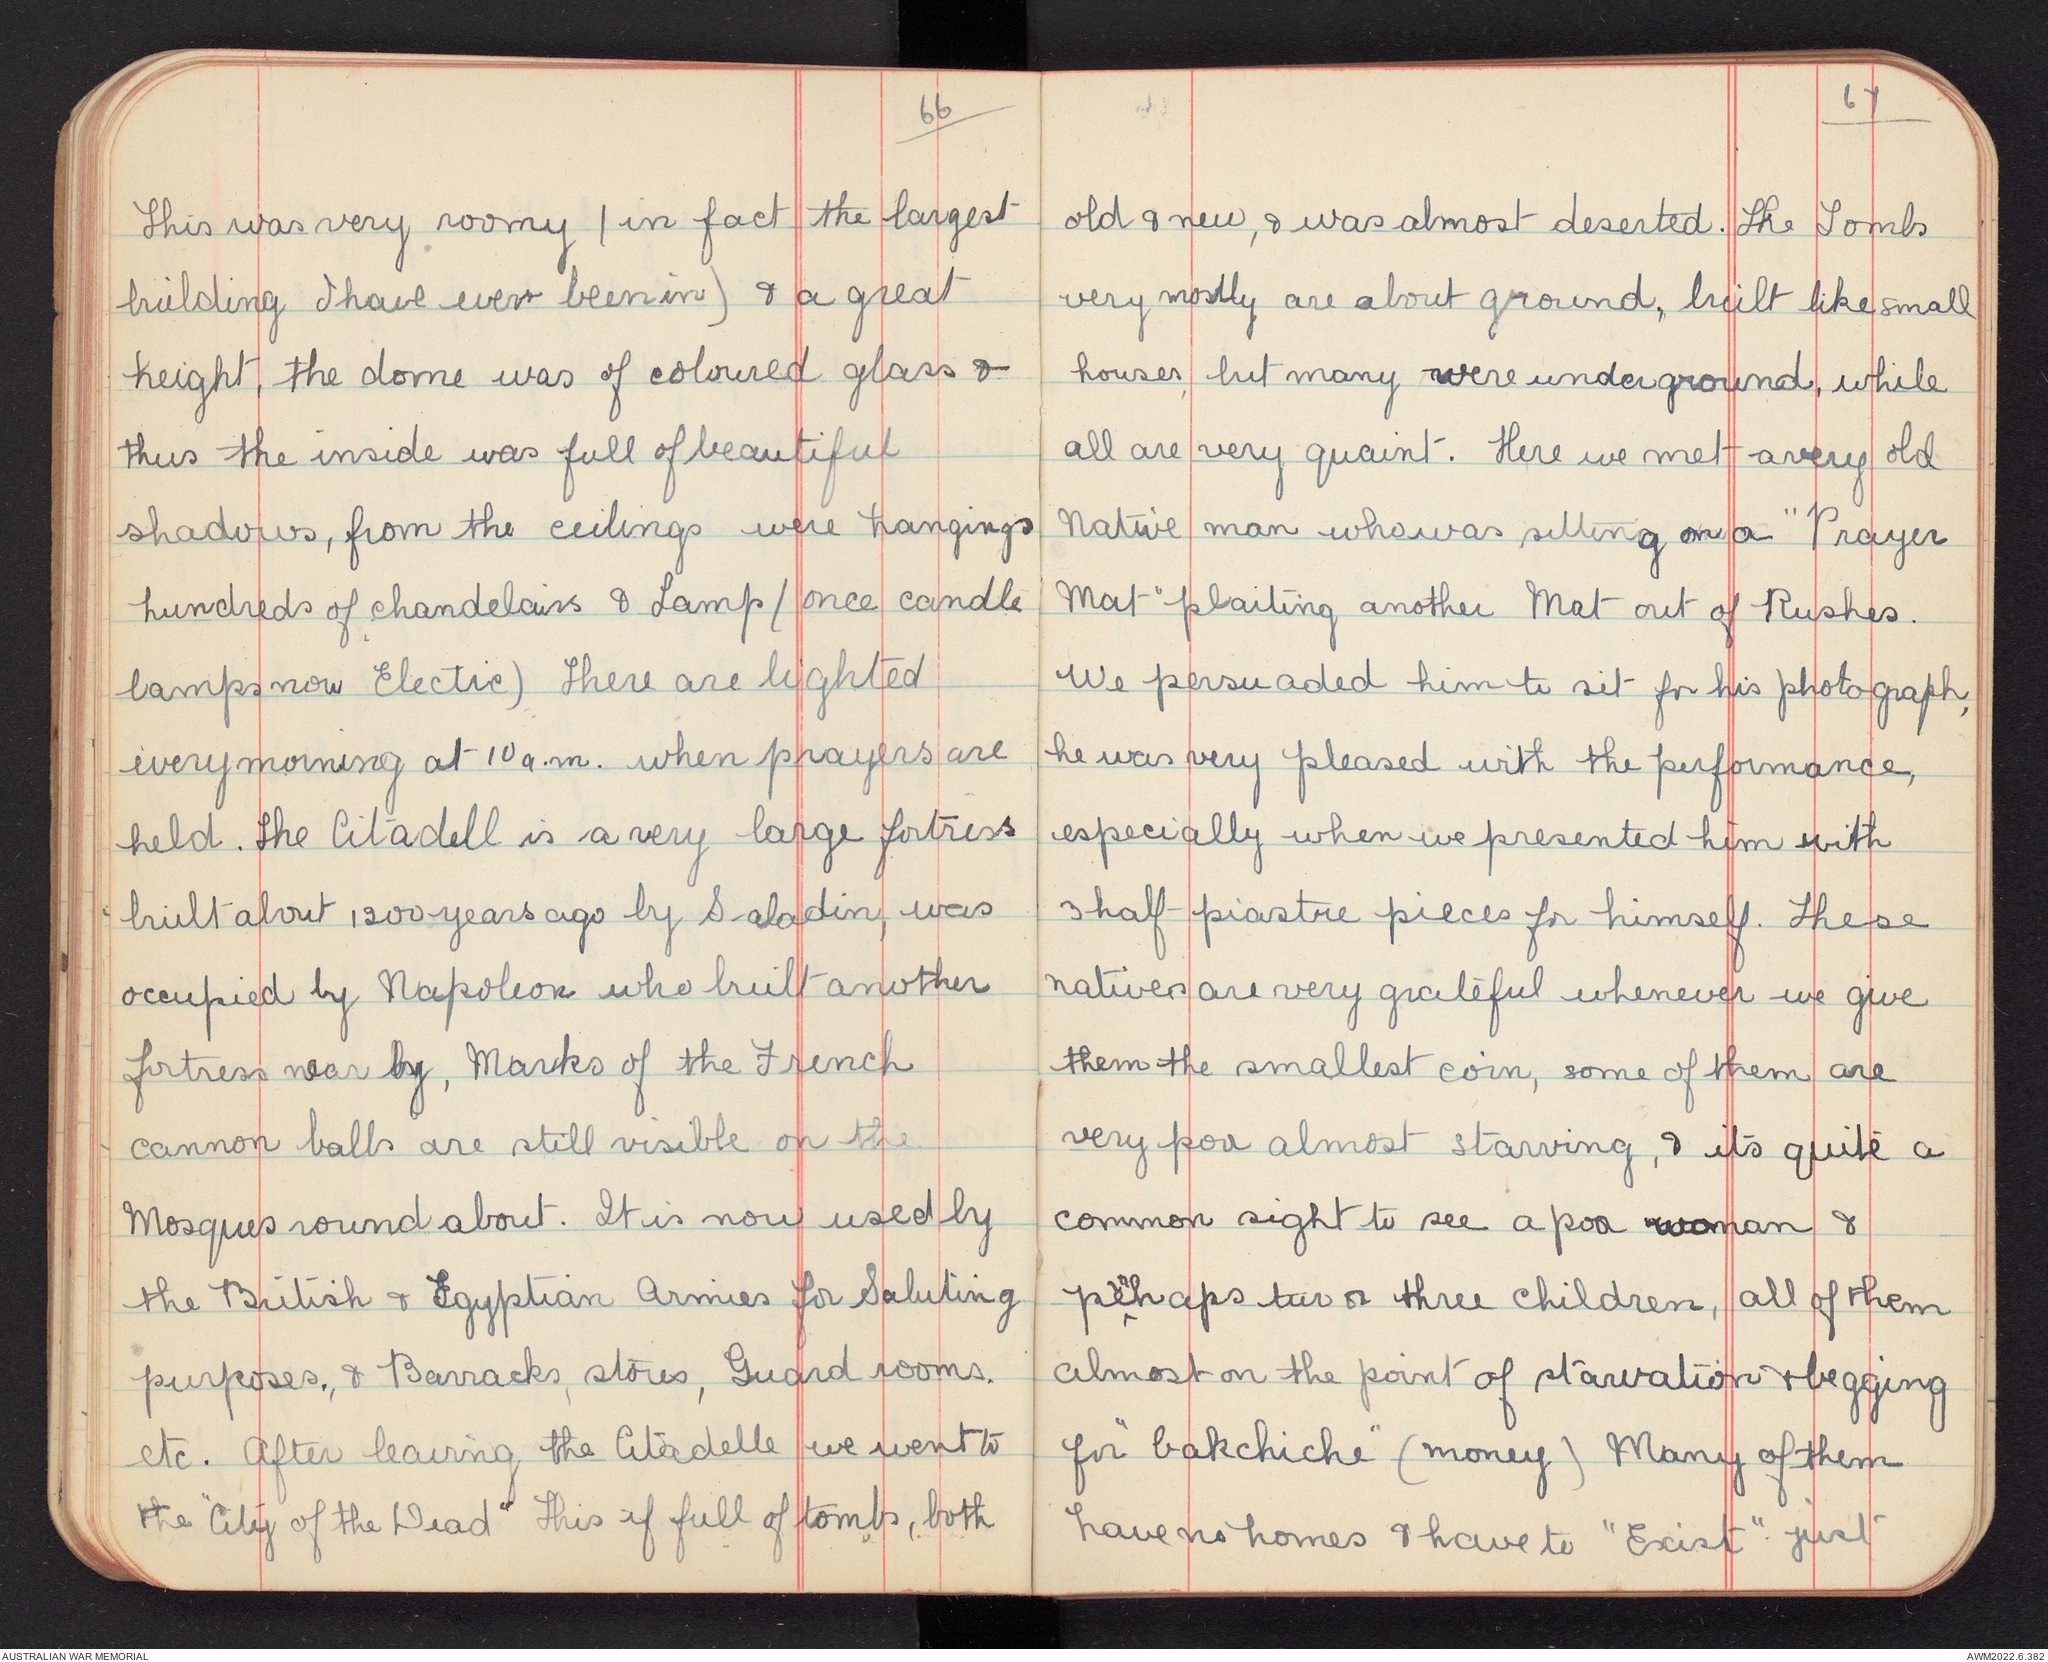 66
This was very roomy (in fact the largest
building I have ever been in) & a great
height, the dome was of coloured glass &
thus the inside was full of beautiful
shadows, from the ceilings were hangings
hundreds of chandelairs & Lamp (once candle
lamps now Electric) There are lighted
every morning at 10 a.m. when prayers are
held. The Citadell is a very large fortress
built about 1200 years ago by Saladin, was
occupied by Napoleon who built another
fortress near by, Marks of the French
cannon balls are still visible on the
Mosques round about. It is now used by
the British & Egyptian Armies for Saluting
purposes., & Barracks, stores, Guard rooms.
etc. After leaving the Citadelle we went to
the "City of the Dead" This if full of tombs, both
67
old & new, & was almost deserted. The Tombs
very mostly are about ground, built like small
houses, but many were underground, while
all are very quaint. Here we met a very old
Native man who was sitting on a "Prayer
Mat" plaiting another Mat out of Rushes.
We persuaded him to sit for his photograph,
he was very pleased with the performance,
especially when we presented him with
3 half piastre pieces for himself. These
natives are very grateful whenever we give
them the smallest coin, some of them are
very poor almost starving, & its quite a
common sight to see a poor woman &
perhaps two or three children, all of them
almost on the point of starvation & begging
for "bakchiche" (money) Many of them
have no homes & have to "Exist" just
AUSTRALIAN WAR MEMORIAL
AWM2022.6.382